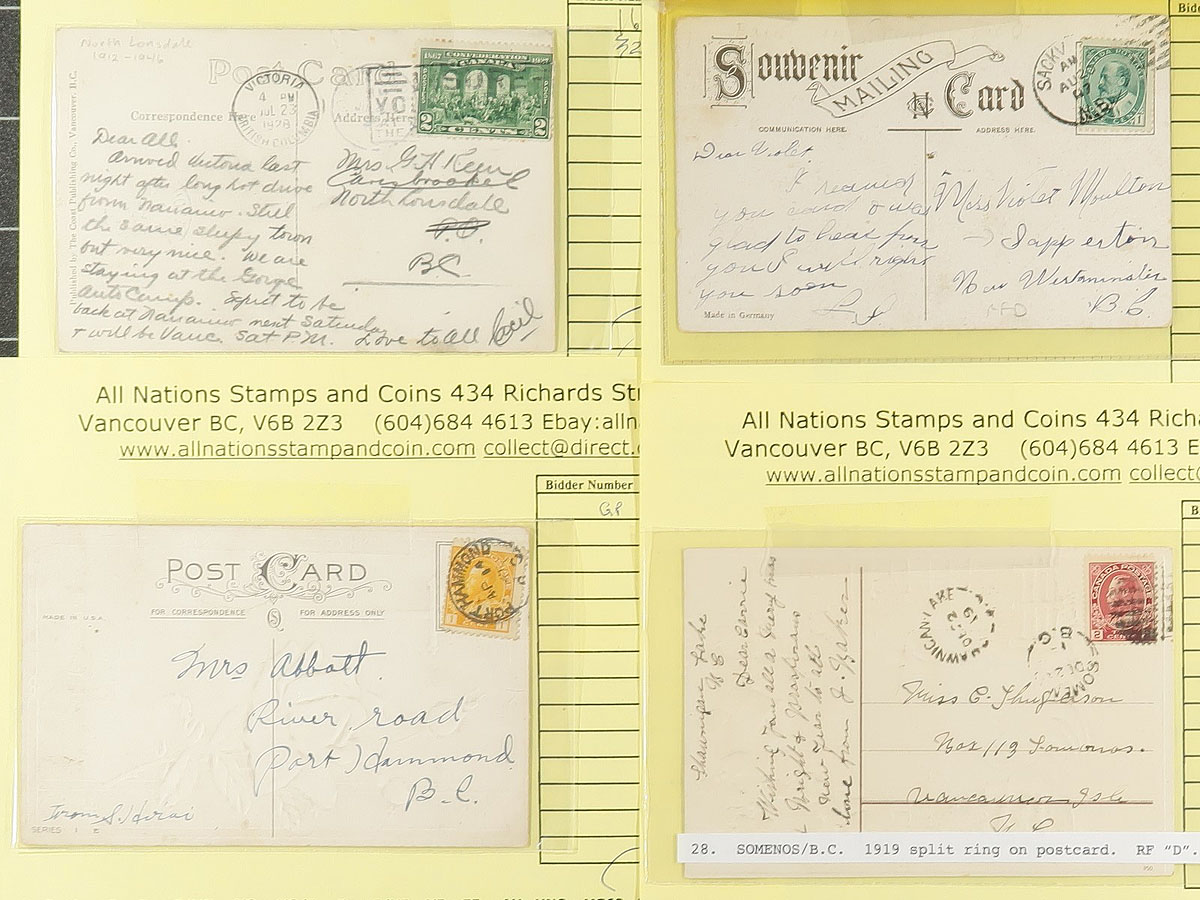 North Lonsdale
1912-1946
Post Card
VICTORIA
4 PM
JUL 23
1928
BRITISH COLUMBIA
CONFEDERATION
1867 CANADA 1927
2 CENTS 2
Correspondence Here
Address Here
Published by The Coast Publishing Co., Vancouver, B.C.
Dear All.
Arrived Victoria last
night after long hot drive
from Nanaimo. Still
the same sleepy town
but very nice. We are
staying at the Gorge
Auto Camp. Expect to be
back at Nanaimo next Saturday
+ will be Vanc. Sat P.M. Love to All Cecil
Mrs G.H. Keen
North Lonsdale
BC.
Souvenir
MAILING
Card
COMMUNICATION HERE.
ADDRESS HERE.
CANADA POSTAGE
Dear Violet.
I received
you card & was
glad to hear from
you I will right
you soon
Miss Violet Moulton
Sapperton
New Westminster
B.C.
Made in Germany
All Nations Stamps and Coins 434 Richards Str
Vancouver BC, V6B 2Z3 (604)684 4613 Ebay:alln
www.allnationsstampandcoin.com collect@direct.
Bidder Number
GP
All Nations Stamps and Coins 434 Richa
Vancouver BC, V6B 2Z3 (604)684 4613 E
www.allnationsstampandcoin.com collect@
POST CARD
MADE IN U.S.A.
FOR CORRESPONDENCE
FOR ADDRESS ONLY
PORT HAMMOND
Mrs Abbott.
River road
Port Hammond
B.C.
SERIES
CANADA POSTAGE
2 CENTS
SHAWNIGAN LAKE
SOMENOS
B.C.
Shawnigan Lake
Dear Carrie
Wishing you all a Merry Xmas
New Year to all
love from J. Baker
Box 113 Somenos.
Vancouver Isle
28. SOMENOS/B.C. 1919 split ring on postcard. RF "D".